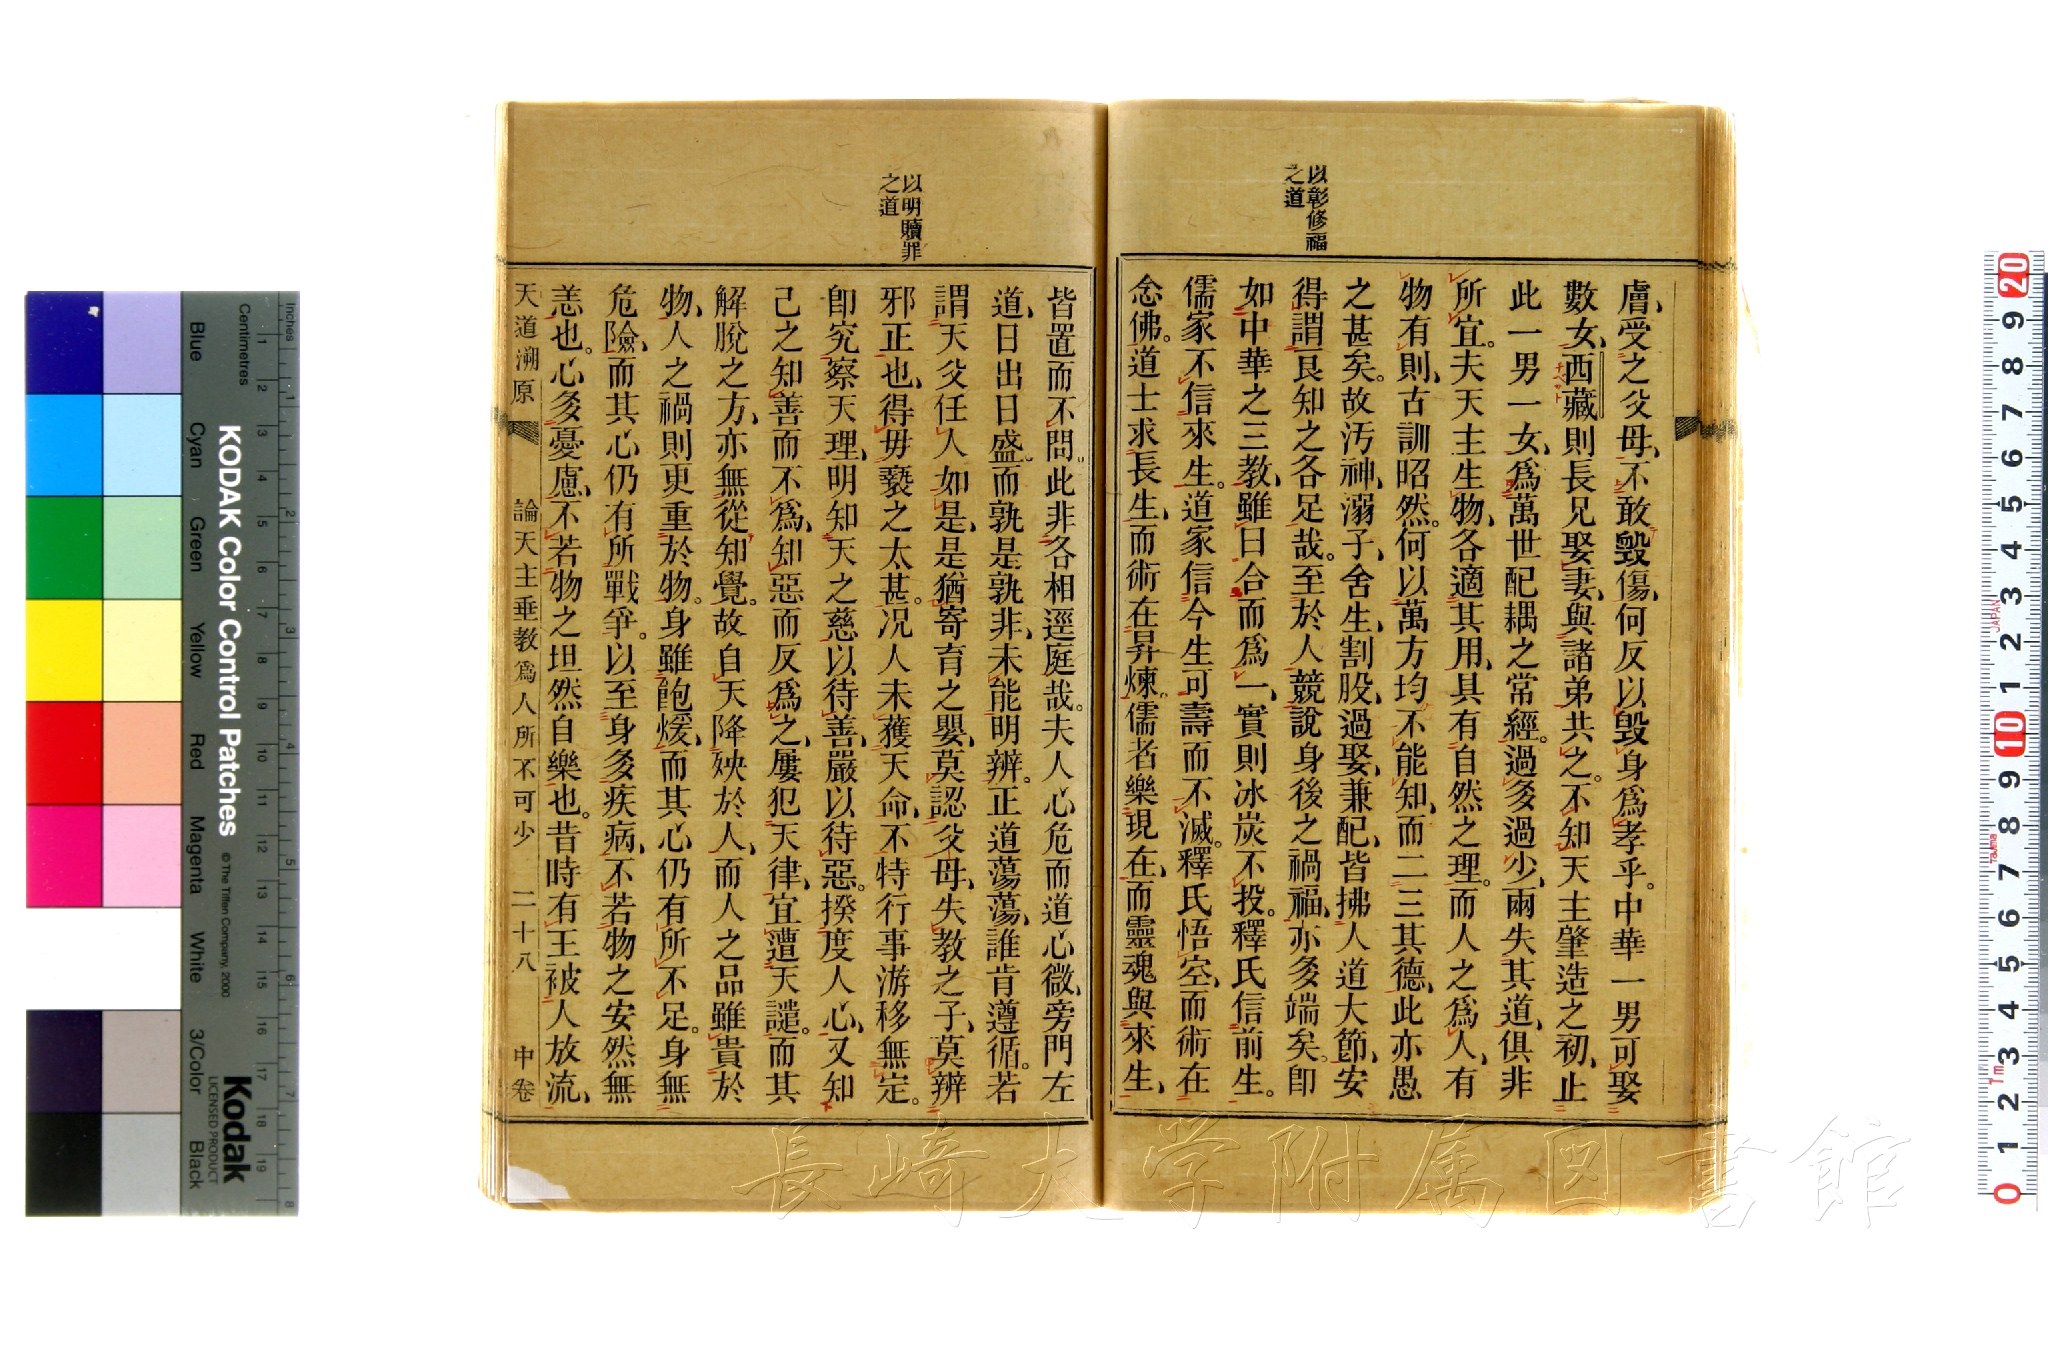 以彰修福
之道
膚、受之父母、不敢毀傷、何反以毀身爲孝乎。中華一男可娶
數女、西藏則長兄娶妻、與諸弟共之。不知天主肇造之初、止
此一男一女、爲萬世配耦之常經。過多過少、兩失其道、俱非
所宜。夫天主生物、各適其用、具有自然之理。而人之爲人、有
物有則、古訓昭然。何以萬方均不能知、而二三其德、此亦愚
之甚矣。故汚神、溺子、舍生、割股、過娶、兼配、皆拂人道大節、安
得謂良知之各足哉。至於人競說身後之禍福、亦多端矣。卽
如中華之三教、雖曰合而爲一、實則冰炭不投。釋氏信前生。
儒家不信來生。道家信今生可壽而不滅。釋氏悟空、而術在
念佛。道士求長生、而術在昇煉。儒者樂現在、而靈魂與來生、
以明贖罪
之道
皆置而不問。此非各相逕庭哉。夫人心危而道心微、旁門左
道、日出日盛。而孰是孰非、未能明辨。正道蕩蕩、誰肯遵循。若
謂天父任人如是、是猶寄育之嬰、莫認父母、失教之子、莫辨
邪正也、得毋褻之太甚。况人未獲天命、不特行事游移無定。
卽究察天理、明知天之慈以待善、嚴以待惡。揆度人心、又知
己之知善而不爲、知惡而反爲之、屢犯天律、宜遭天譴。而其
解脫之方、亦無從知覺。故自天降殃於人、而人之品雖貴於
物、人之禍則更重於物。身雖飽煖、而其心仍有所不足。身無
危險、而其心仍有所戰爭。以至身多疾病、不若物之安然無
恙也。心多憂慮、不若物之坦然自樂也。昔時有王被人放流、
天道溯原　論天主垂教爲人所不可少　二十八　中卷
KODAK Color Control Patches
© The Tiffen Company, 2000
Kodak
LICENSED PRODUCT
Inches
Centimetres
Blue
Cyan
Green
Yellow
Red
Magenta
White
3/Color
Black
長崎大学附属図書館